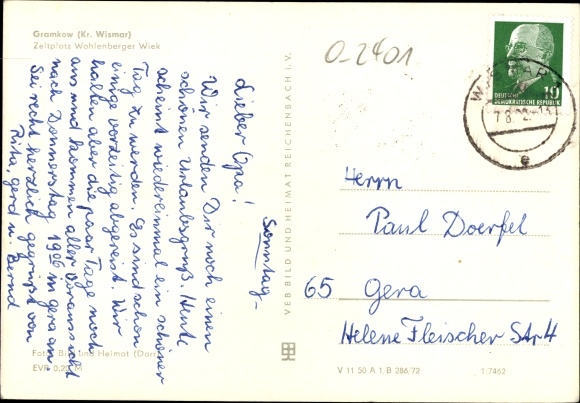 Gramkow (Kr. Wismar)
Zeltplatz Wohlenberger Wiek
O-2401
DEUTSCHE
DEMOKRATISCHE REPUBLIK
10
Sonntag –
Lieber Opa!
Wir senden Dir noch einen
schönen Urlaubsgruß. Heute
scheint wiedereinmal ein schöner
Tag zu werden. Es sind schon
einige vorzeitig abgereist. Wir
halten aber die paar Tage noch
aus und kommen aller Voraussicht
nach Donnerstag 19⁰⁰ in Gera an.
Sei recht herzlich gegrüßt von
Rita, Gerd u. Bernd
VEB BILD UND HEIMAT REICHENBACH I. V.
Herrn
Paul Doerfel
65 Gera
Helene Fleischer Str 4
Foto: Bild und Heimat
EVP 0,20 M
V 11 50 A 1. B 286/72
1/7462